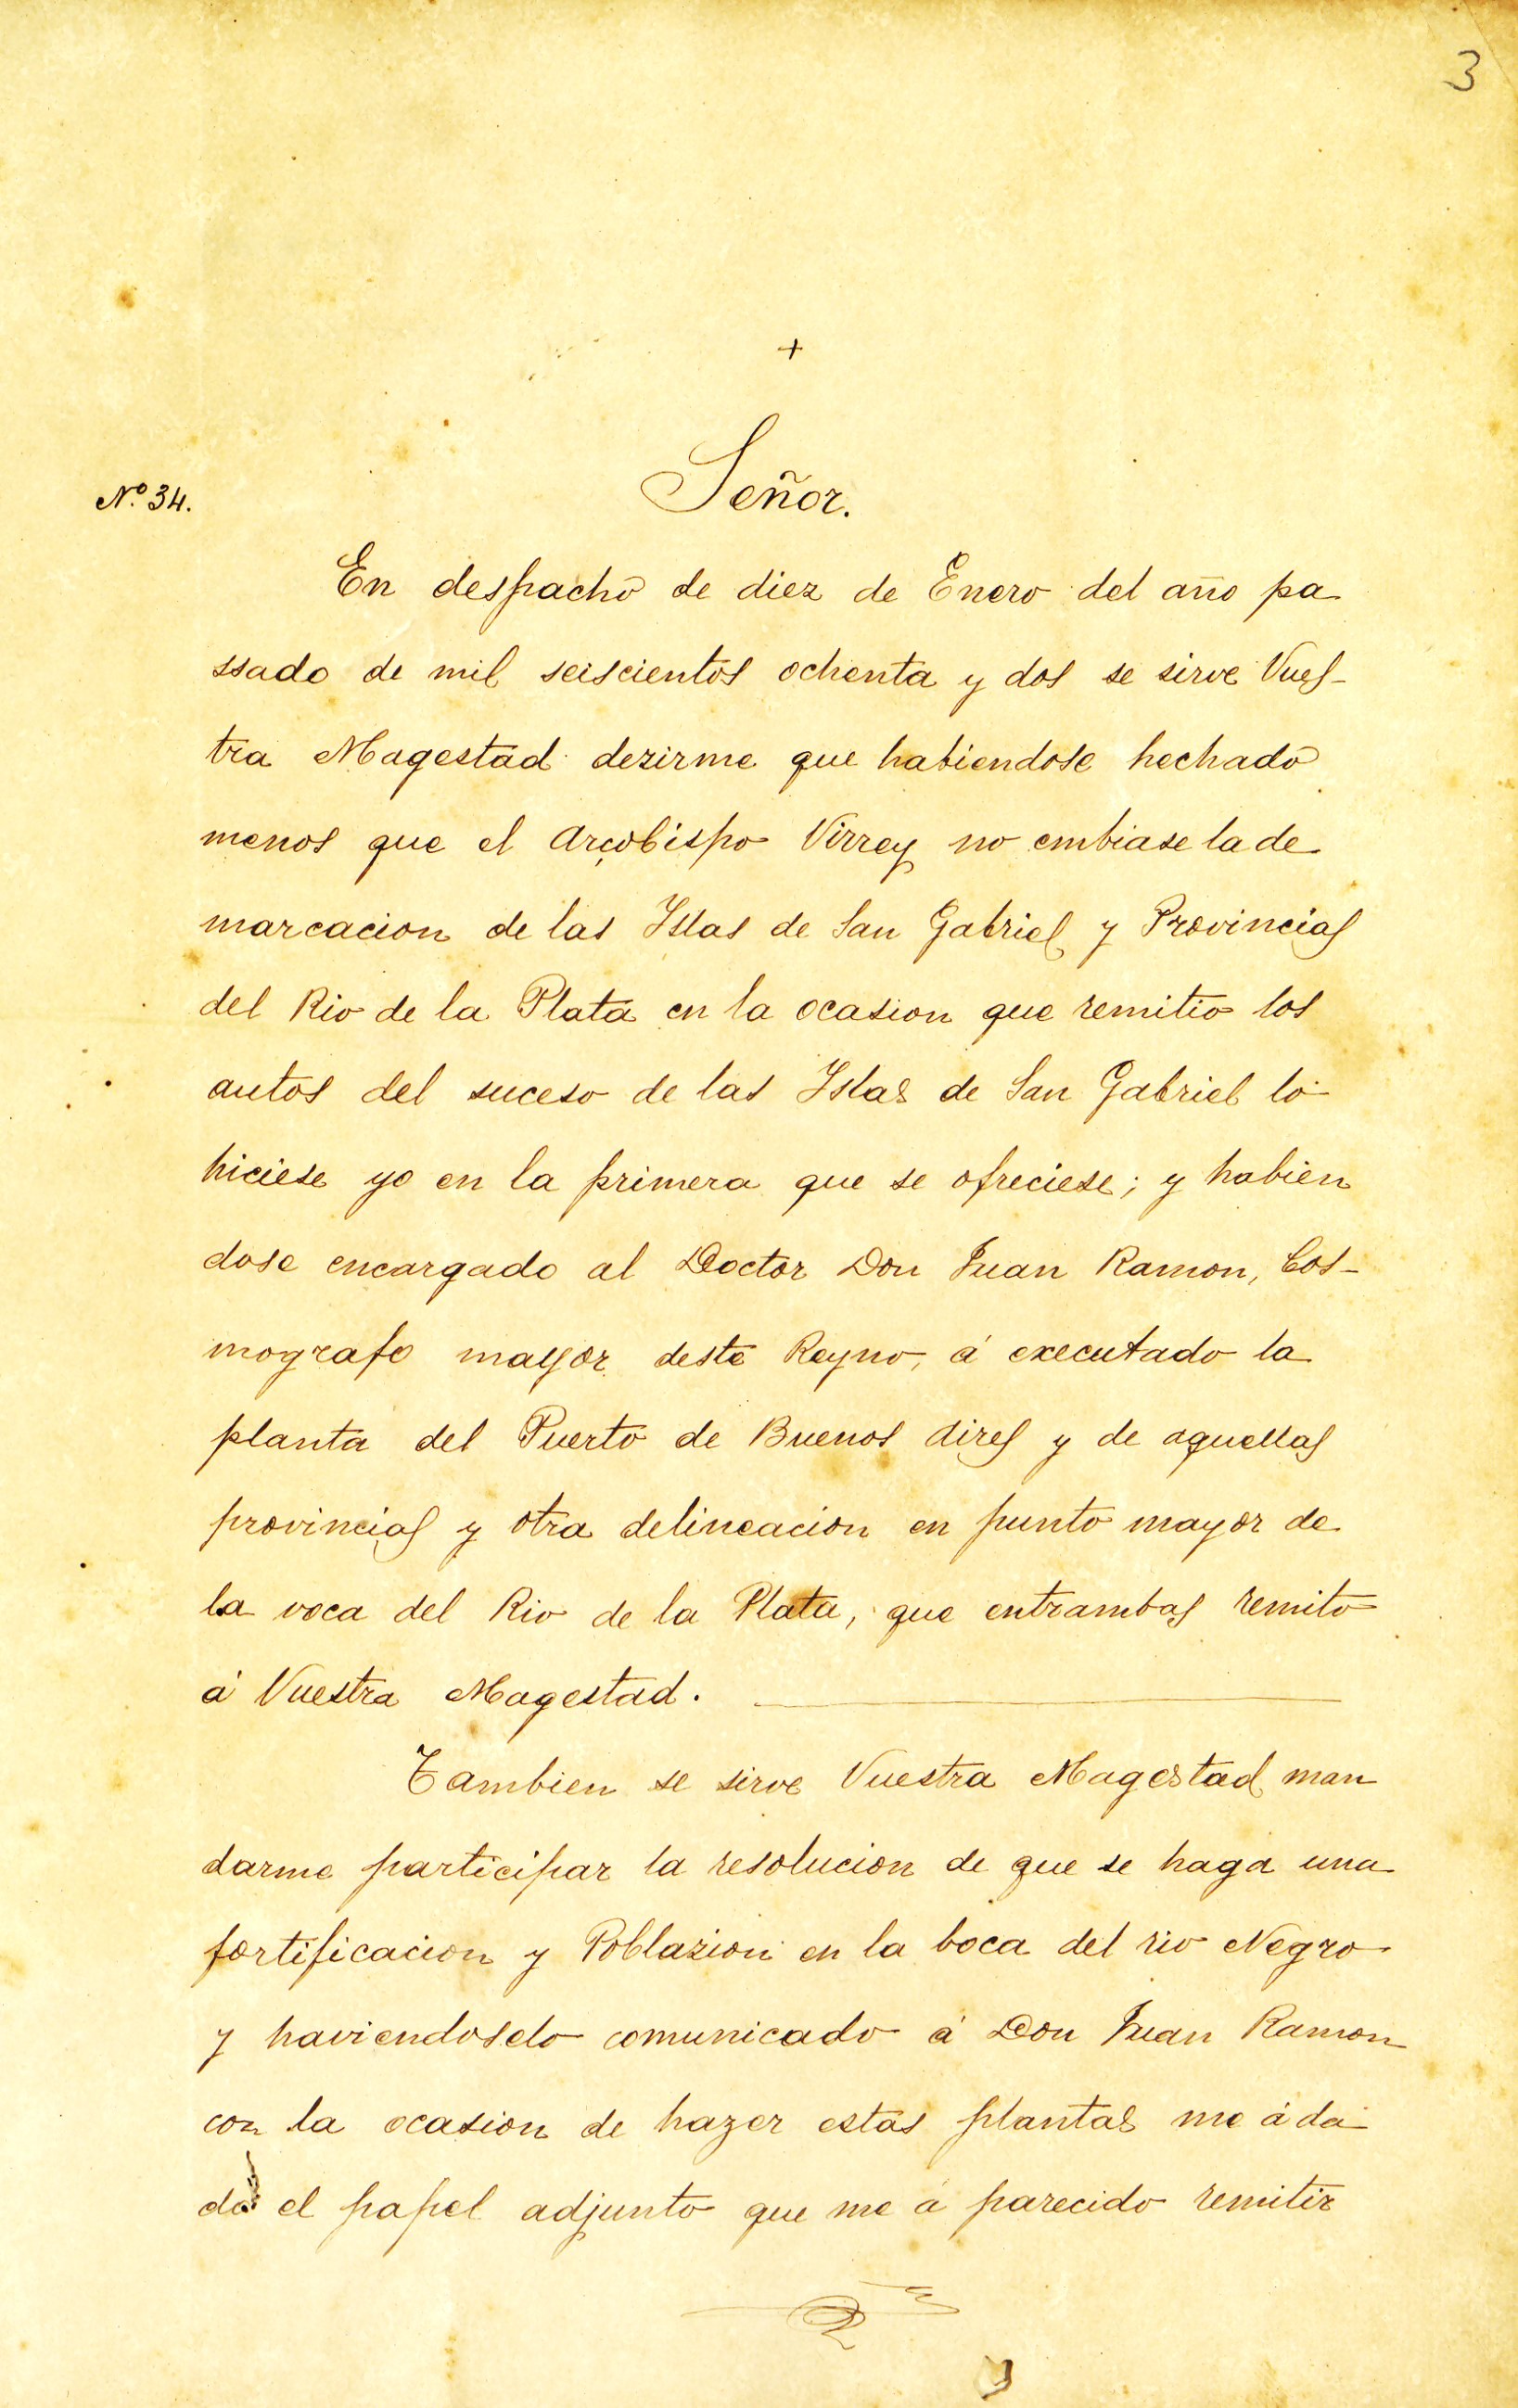 3
+
Nº 34.
Señor.
En despacho de diez de Enero del año pa
ssado de mil seiscientos ochenta y dos se sirve Vues-
tra Magestad dezirme que habiendose hechado
menos que el Arçobispo Virrey no embiase la de
marcacion de las Yslas de San Gabriel y Provincias
del Rio de la Plata en la ocasion que remitio los
autos del suceso de las Yslas de San Gabriel lo
hiciese yo en la primera que se ofreciese; y habien
dose encargado al Doctor Don Juan Ramon, Cos-
mografo mayor deste Reyno, á executado la
planta del Puerto de Buenos Aires y de aquellas
provincias y otra delineacion en punto mayor de
la voca del Rio de la Plata, que entrambas remito
á Vuestra Magestad.
Tambien se sirve Vuestra Magestad man
darme participar la resolucion de que se haga una
fortificacion y Poblazion en la boca del rio Negro
y haviendoselo comunicado á Don Juan Ramon
con la ocasion de hazer estas plantas me á da
do el papel adjunto que me á parecido remitir